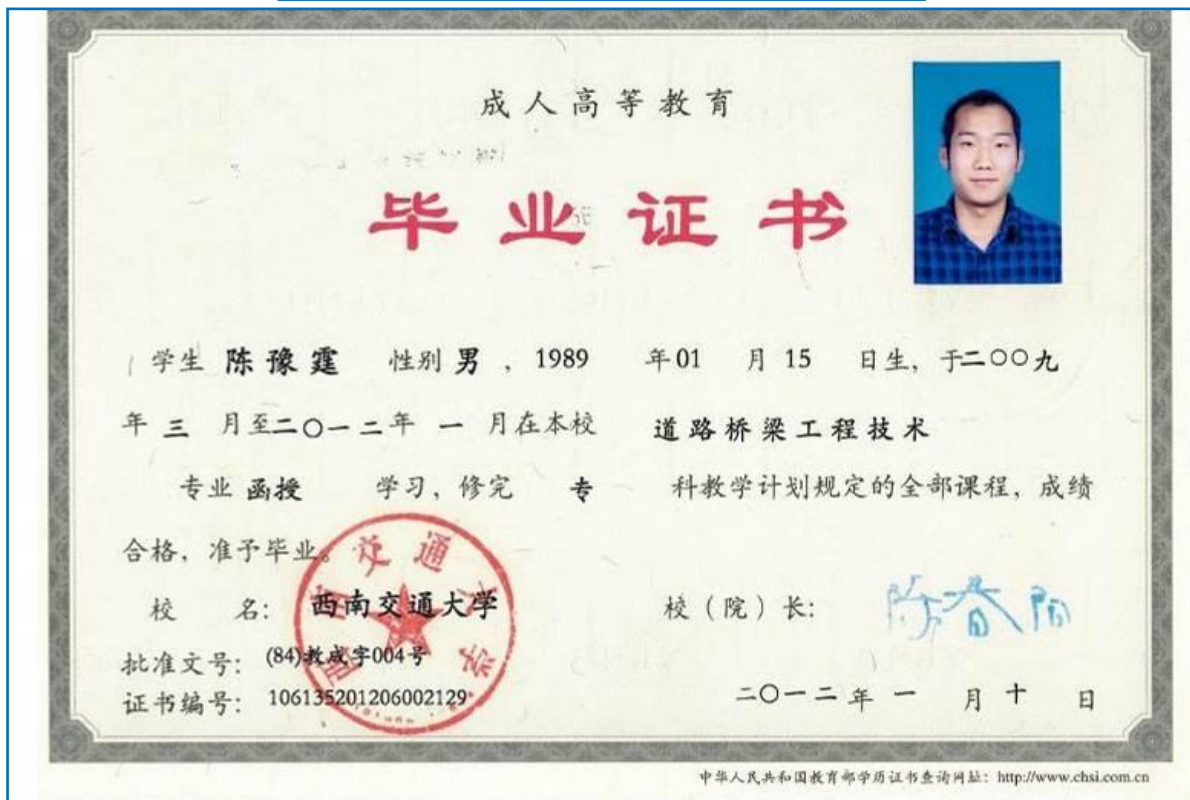 成人高等教育
毕业证书
学生 陈豫霆 性别 男 , 1989 年 01 月 15 日生, 于二〇〇九
年 三 月至二〇一二年 一 月在本校 道路桥梁工程技术
专业 函授 学习, 修完 专 科教学计划规定的全部课程, 成绩
合格, 准予毕业。
校 名: 西南交通大学 校(院)长:
批准文号: (84)教成字004号
证书编号: 106135201206002129
二〇一二年 一 月 十 日
西南交通大学
中华人民共和国教育部学历证书查询网址: http://www.chsi.com.cn